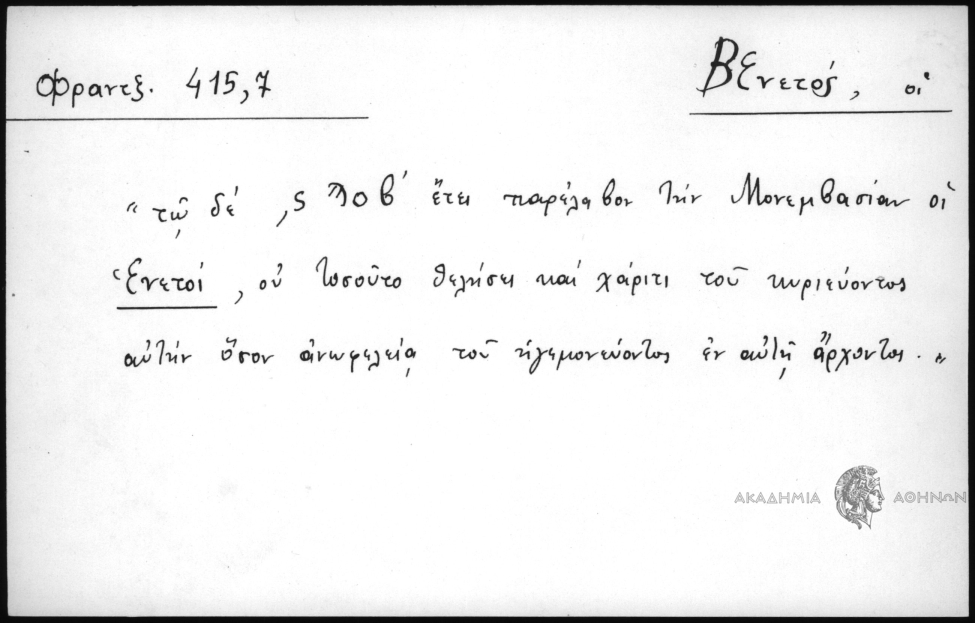 Φραντζ. 415,7
Βενετός, οἱ
"τῷ δέ ͵ς϶οβ΄ ἔτει παρέλαβον τήν Μονεμβασίαν οἱ
Ἑνετοί, οὐ τοσοῦτο θελήσει καί χάριτι τοῦ κυριεύοντος
αὐτήν ὅσον ἀνωφελείᾳ τοῦ ἡγεμονεύοντος ἐν αὐτῇ ἄρχοντος."
ΑΚΑΔΗΜΙΑ ΑΘΗΝΩΝ